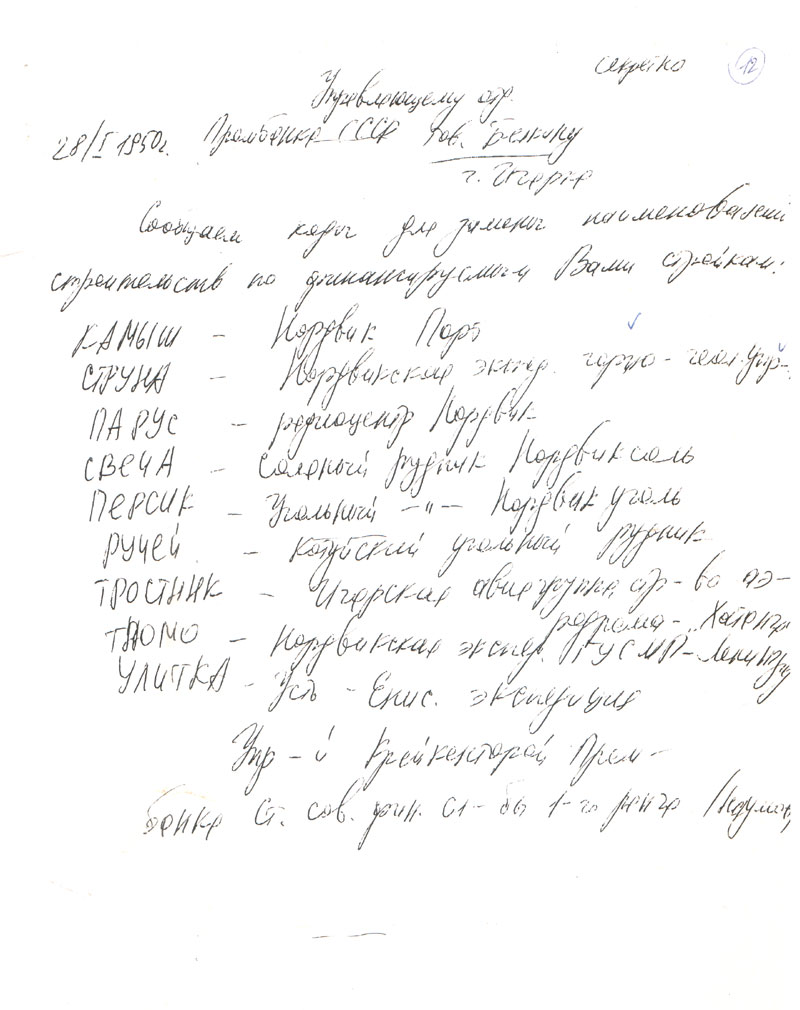 секретно 12
Управляющему отд.
28/I 1950г. Промбанка СССР тов. Бекину
г. Игарка
Сообщаем коды для замены наименований
строительств по финансируемым Вами стройкам:
КАМЫШ – Нордвик Порт
СТРУНА – Нордвикское экспед. горно-геол. упр-
ПАРУС – радиоцентр Нордвик
СВЕЧА – Соляный рудник Нордвиксоль
ПЕРСИК – Угольный –"– Нордвик уголь
РУЧЕЙ – Котуйский угольный рудник
ТРОСТНИК – Игарская авиагруппа стр-во аэ-
родрома – "Хатанга
– Нордвикская экспед. ГУСМП – Ленинград
УЛИТКА – Усть-Енис. экспедиция
Упр-й Крайконторой Пром-
банка Ст. сов. фин. сл-бы 1-го ранга